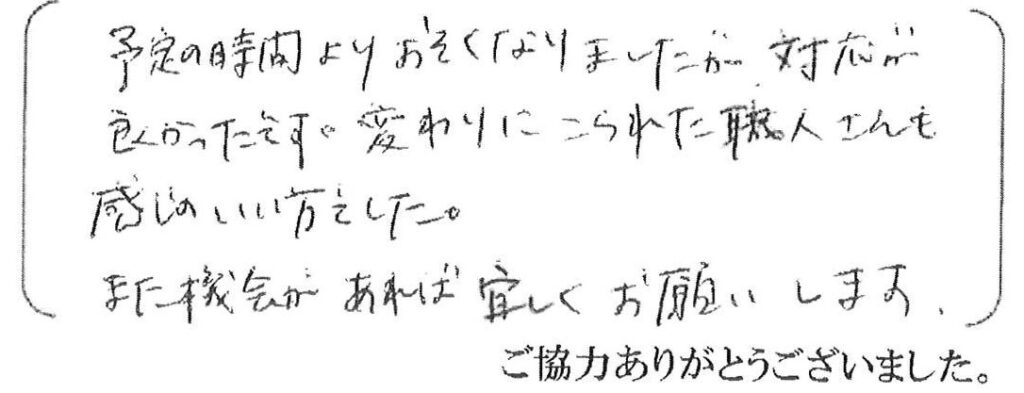 予定の時間よりおそくなりましたが 対応が
良かったです。変わりにこられた職人さんも
感じのいい方でした。
また機会があれば宜しくお願いします。
ご協力ありがとうございました。